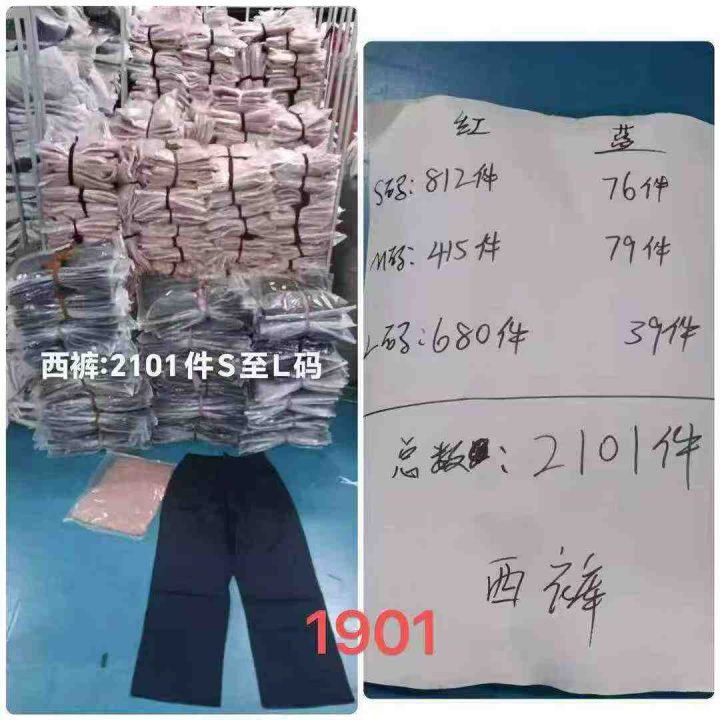 西裤:2101件S至L码
红 蓝
S码:812件 76件
M码:415件 79件
L码:680件 39件
总数:2101件
西裤
1901